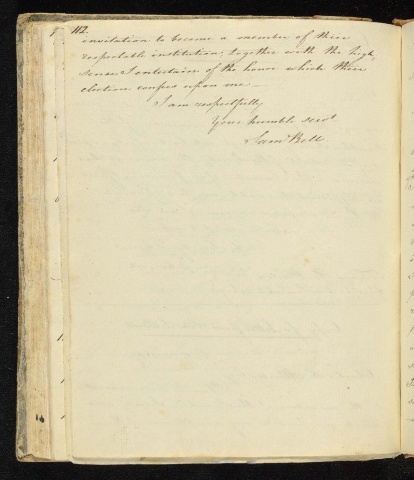 112.
invitation to become a member of their
respectable institution; together with the high
sense I entertain of the honor which their
election confers upon me—
I am respectfully
Your humble servt
Saml Bell